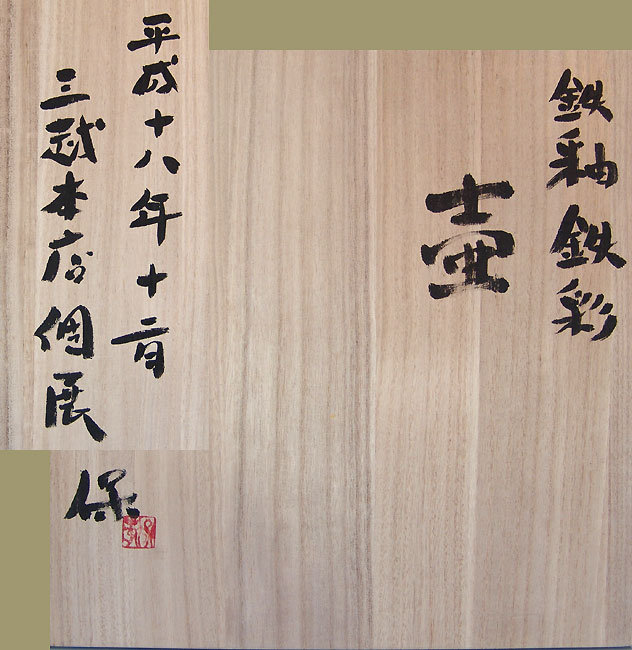 鉄釉鉄彩
壷
保
平成十八年十二月
三越本店個展